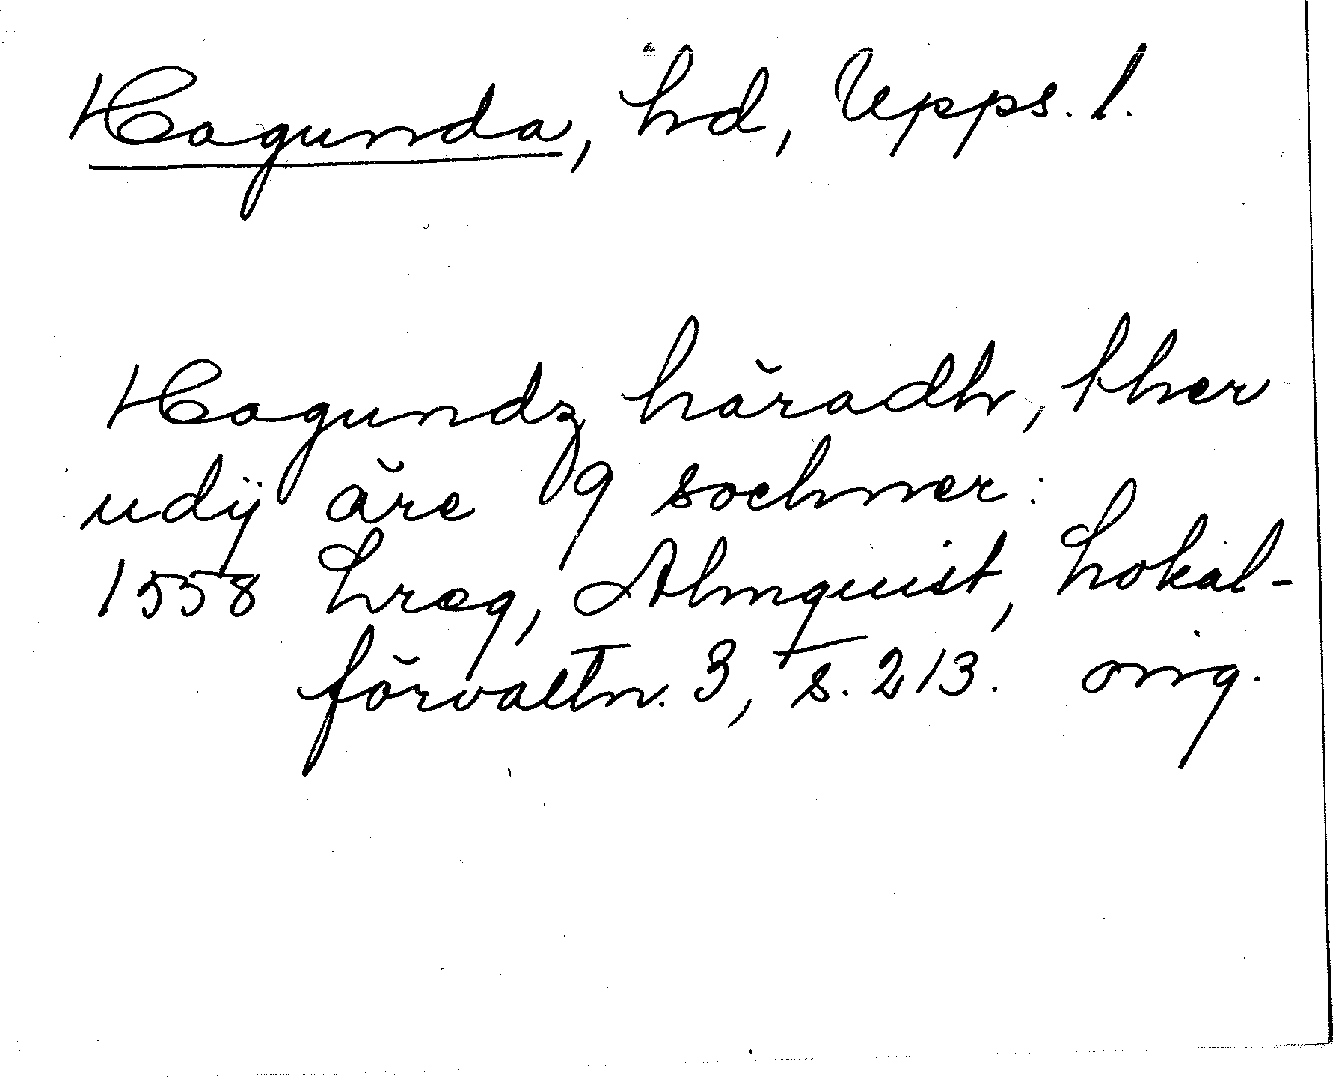 Hagunda, hd, Upps. l.
Hagundz häradh, ther
udij äre 9 sochner:
1558 hreg, Almquist, Lokal-
förvaltn. 3, s. 213. orig.